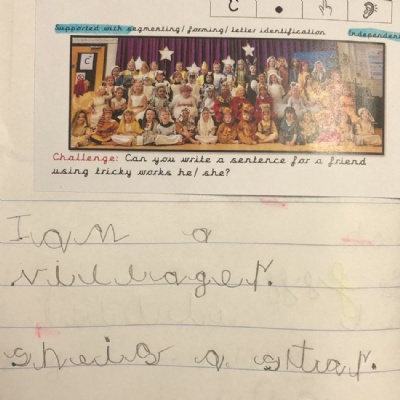 c
Supported with segmenting/ forming/ letter identification
Independent
Challenge: Can you write a sentence for a friend
using tricky works he/ she?
I am a
villager.
she is a star.